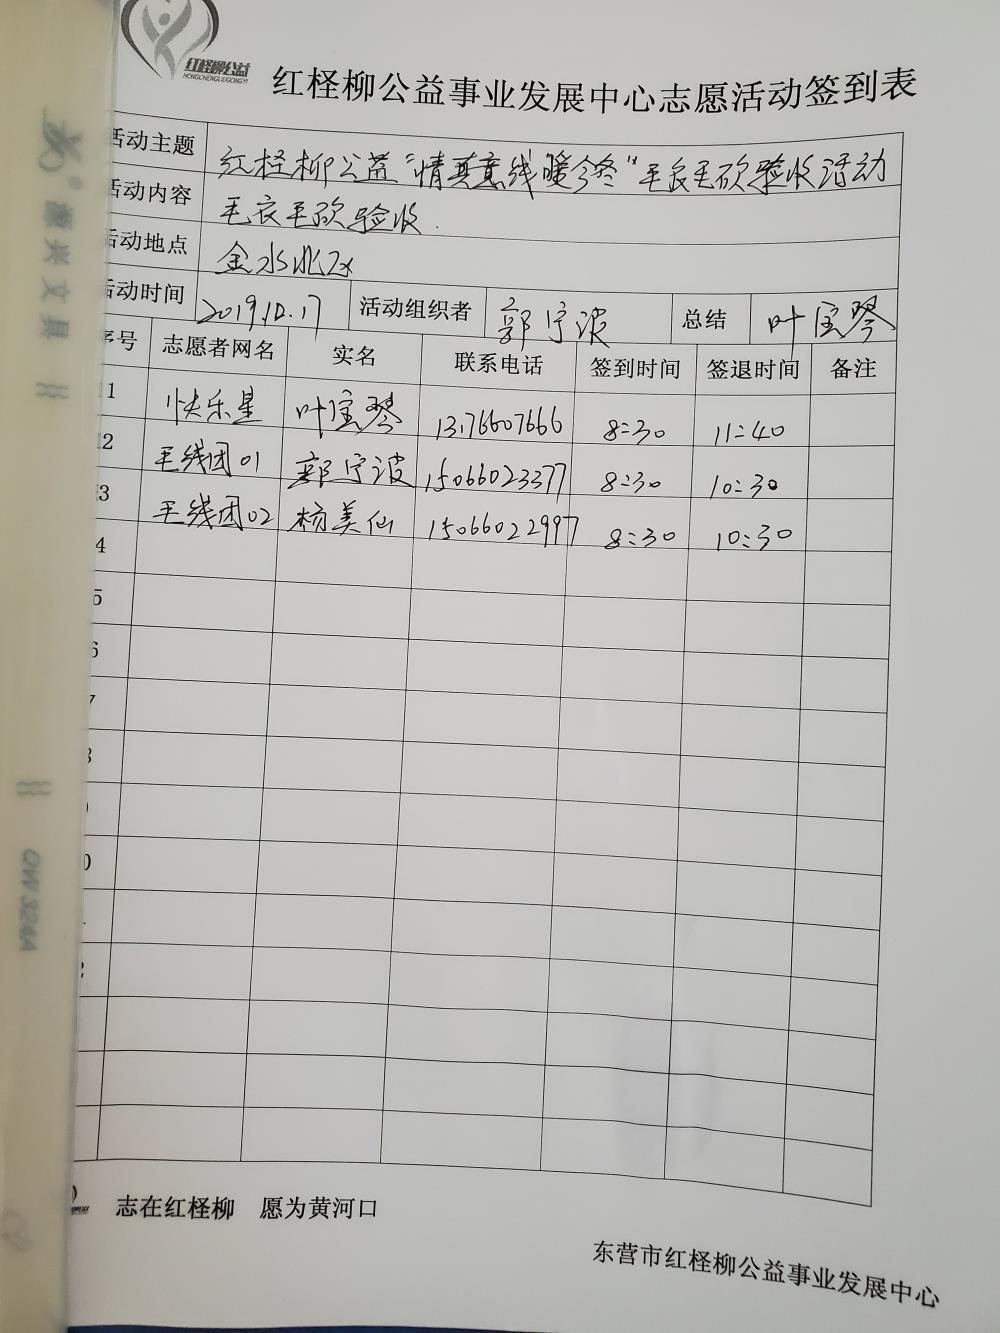 红柽柳公益
HONGCHENGLIUGONGYI
红柽柳公益事业发展中心志愿活动签到表
活动主题 红柽柳公益“情真意线暖今冬”毛衣毛砍验收活动
活动内容 毛衣毛砍验收.
活动地点 金水北区
活动时间 2019.10.17 活动组织者 郭宁波 总结 叶宝琴
序号 志愿者网名 实名 联系电话 签到时间 签退时间 备注
1 快乐星 叶宝琴 13176607666 8:30 11:40
2 毛线团01 郭宁波 15066023377 8:30 10:30
3 毛线团02 杨美仙 15066022997 8:30 10:30
4
5
6
7
8
志在红柽柳 愿为黄河口
东营市红柽柳公益事业发展中心
源兴文具
QW324A